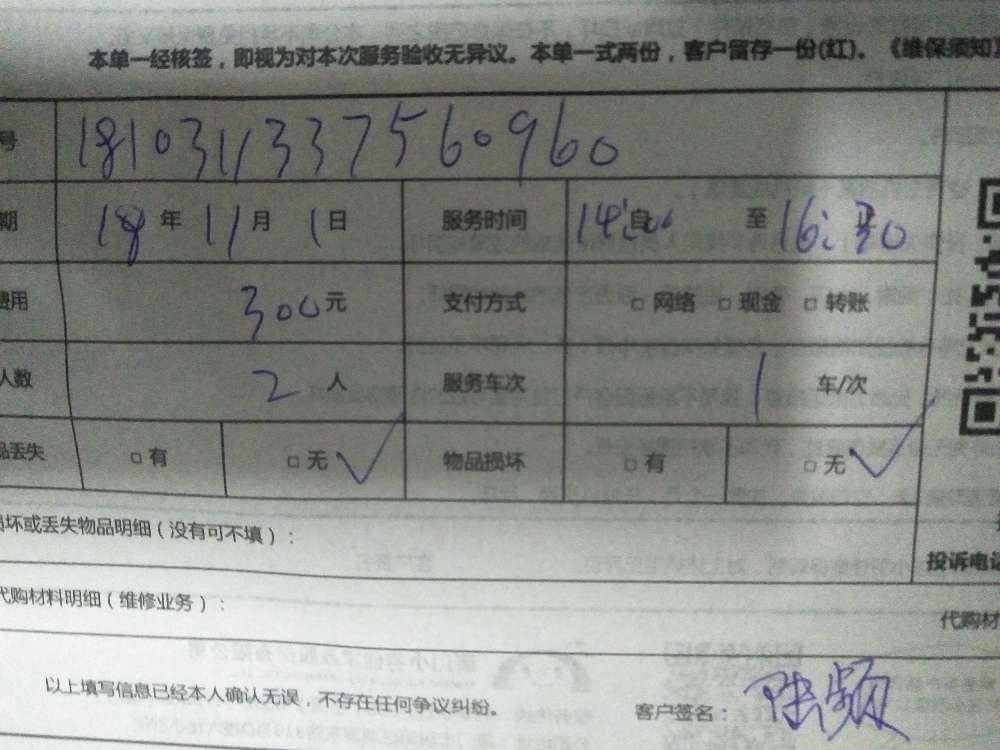 本单一经核签，即视为对本次服务验收无异议。本单一式两份，客户留存一份(红)。《维保须知》
号 1810311337560960
期 18年11月1日 服务时间 14:00 自 至 16:30
费用 300元 支付方式 □ 网络 □ 现金 □ 转账
人数 2人 服务车次 1 车/次
品丢失 □ 有 □ 无 ✓ 物品损坏 □ 有 □ 无 ✓
损坏或丢失物品明细（没有可不填）：
投诉电话
代购材料明细（维修业务）：
代购材
以上填写信息已经本人确认无误，不存在任何争议纠纷。
客户签名：陆频